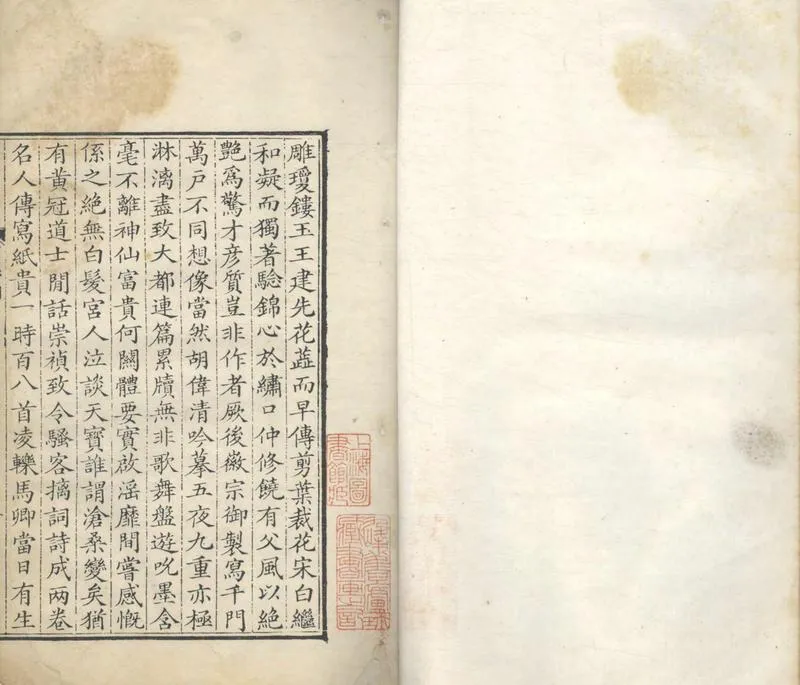 雕瓊鏤玉王建先花蕋而早傳剪葉裁花宋白繼
和凝而獨著驗錦心於繡口仲修饒有父風以絶
艷爲驚才彦質豈非作者厥後徽宗御製寫千門
萬戸不同想像當然胡偉清吟摹五夜九重亦極
淋漓盡致大都連篇累牘無非歌舞盤遊吮墨含
毫不離神仙富貴何關體要實啟滛靡間嘗感慨
係之絶無白髮宮人泣談天寳誰謂滄桑變矣猶
有黃冠道士閒話崇禎致令騷客摛詞詩成兩卷
名人傳寫紙貴一時百八首凌轢馬卿當日有生
上海圖
書館藏